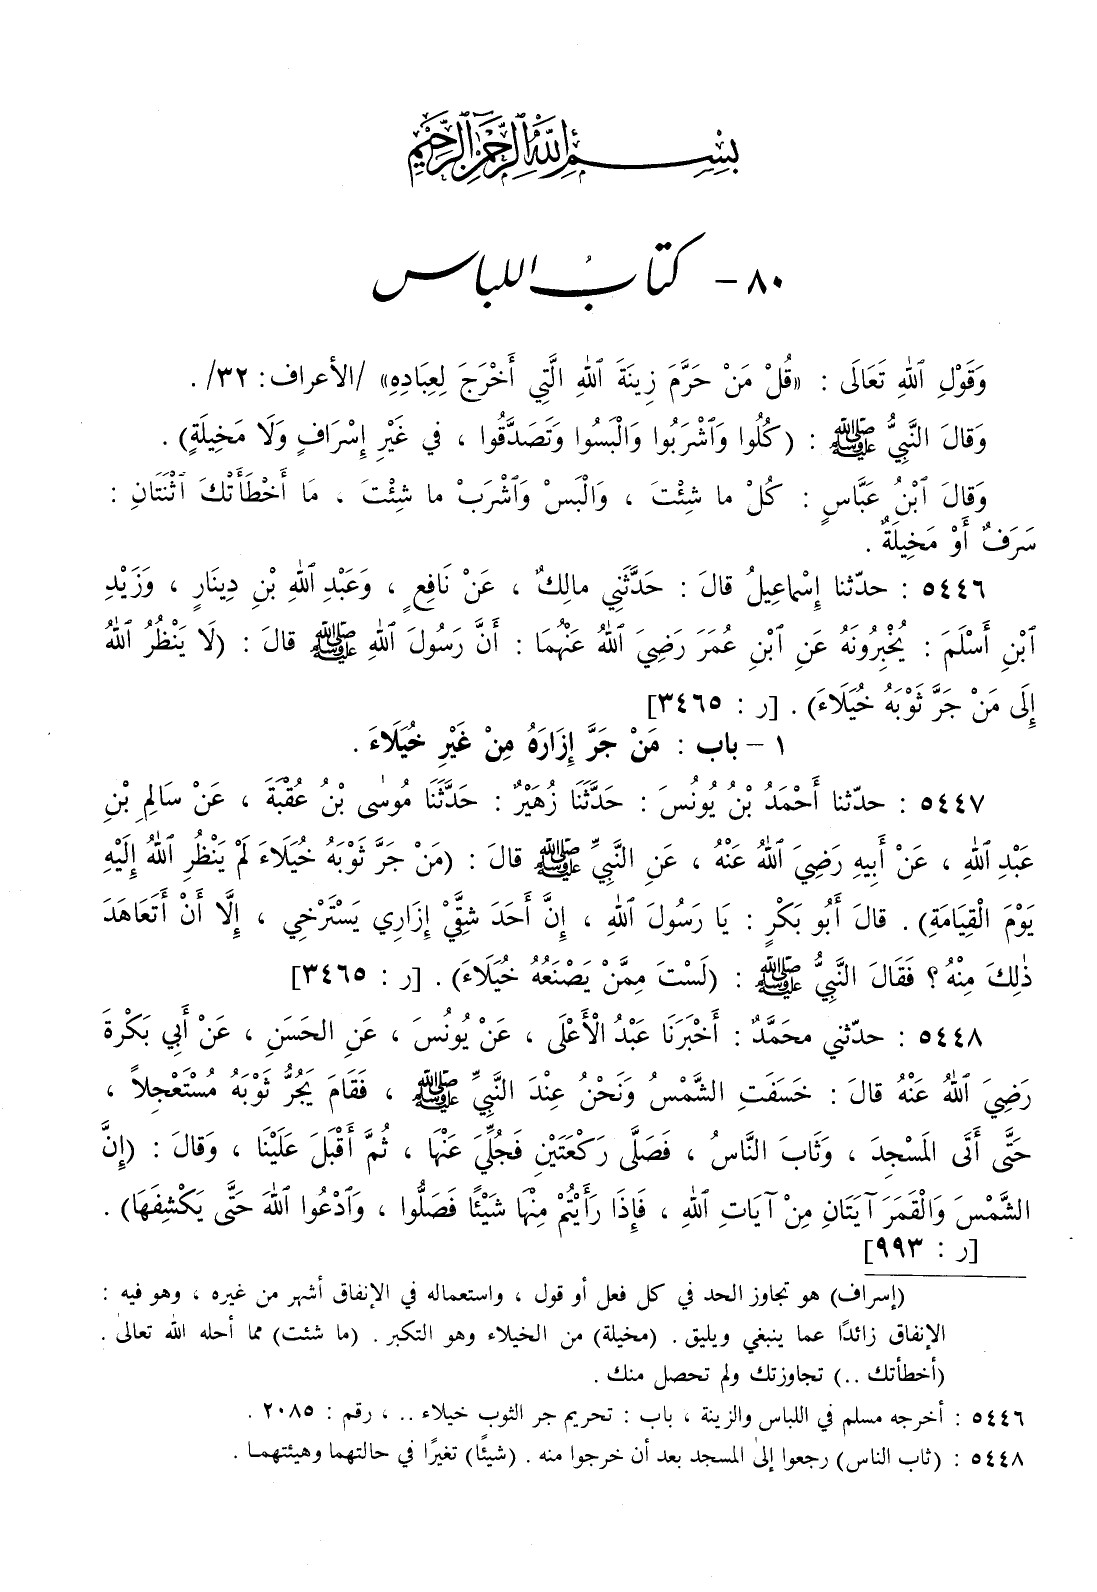 بِسْمِ اللَّهِ الرَّحْمَنِ الرَّحِيمِ
٨٠ - كتابُ اللباس
وَقَوْلِ ٱللهِ تَعَالَى : «قُلْ مَنْ حَرَّمَ زِينَةَ ٱللهِ الَّتِي أَخْرَجَ لِعِبَادِهِ» /الأعراف: ٣٢/ .
وَقالَ النَّبِيُّ ﷺ : (كُلُوا وَٱشْرَبُوا وَالْبَسُوا وَتَصَدَّقُوا ، في غَيْرِ إِسْرَافٍ وَلَا مَخِيلَةٍ) .
وَقالَ ٱبْنُ عَبَّاسٍ : كُلْ ما شِئْتَ ، وَالْبَسْ وَٱشْرَبْ ما شِئْتَ ، مَا أَخْطَأَتْكَ ٱثْنَتَانِ :
سَرَفٌ أَوْ مَخِيلَةٌ .
٥٤٤٦ : حدّثنا إِسْماعِيلُ قالَ : حَدَّثَنِي مالِكٌ ، عَنْ نَافِعٍ ، وَعَبْدِ ٱللهِ بْنِ دِينَارٍ ، وَزَيْدِ
ٱبْنِ أَسْلَمَ : يُخْبِرُونَهُ عَنِ ٱبْنِ عُمَرَ رَضِيَ ٱللهُ عَنْهُمَا : أَنَّ رَسُولَ ٱللهِ ﷺ قالَ : (لَا يَنْظُرُ ٱللهُ
إِلَى مَنْ جَرَّ ثَوْبَهُ خُيَلَاءَ) . [ر : ٣٤٦٥]
١ – باب : مَنْ جَرَّ إِزَارَهُ مِنْ غَيْرِ خُيَلَاءَ .
٥٤٤٧ : حدّثنا أَحْمَدُ بْنُ يُونُسَ : حَدَّثَنَا زُهَيْرٌ : حَدَّثَنَا مُوسٰى بْنُ عُقْبَةَ ، عَنْ سَالِمِ بْنِ
عَبْدِ ٱللهِ ، عَنْ أَبِيهِ رَضِيَ ٱللهُ عَنْهُ ، عَنِ النَّبِيِّ ﷺ قالَ : (مَنْ جَرَّ ثَوْبَهُ خُيَلَاءَ لَمْ يَنْظُرِ ٱللهُ إِلَيْهِ
يَوْمَ الْقِيَامَةِ) . قالَ أَبُو بَكْرٍ : يَا رَسُولَ ٱللهِ ، إِنَّ أَحَدَ شِقَّيْ إِزَارِي يَسْتَرْخِي ، إِلَّا أَنْ أَتَعَاهَدَ
ذٰلِكَ مِنْهُ ؟ فَقَالَ النَّبِيُّ ﷺ : (لَسْتَ مِمَّنْ يَصْنَعُهُ خُيَلَاءَ) . [ر : ٣٤٦٥]
٥٤٤٨ : حدّثني محَمَّدٌ : أَخْبَرَنَا عَبْدُ الْأَعْلَى ، عَنْ يُونُسَ ، عَنِ الحَسَنِ ، عَنْ أَبِي بَكْرَةَ
رَضِيَ ٱللهُ عَنْهُ قالَ : خَسَفَتِ الشَّمْسُ وَنَحْنُ عِنْدَ النَّبِيِّ ﷺ ، فَقَامَ يَجُرُّ ثَوْبَهُ مُسْتَعْجِلاً ،
حَتَّى أَتَى الْمَسْجِدَ ، وَثَابَ النَّاسُ ، فَصَلَّى رَكْعَتَيْنِ فَجُلِّيَ عَنْهَا ، ثُمَّ أَقْبَلَ عَلَيْنَا ، وَقالَ : (إِنَّ
الشَّمْسَ وَالْقَمَرَ آيَتَانِ مِنْ آيَاتِ ٱللهِ ، فَإِذَا رَأَيْتُمْ مِنْهَا شَيْئًا فَصَلُّوا ، وَٱدْعُوا ٱللهَ حَتَّى يَكْشِفَهَا) .
[ر : ٩٩٣]
(إسراف) هو تجاوز الحد في كل فعل أو قول ، واستعماله في الإنفاق أشهر من غيره ، وهو فيه :
الإنفاق زائدًا عما ينبغي ويليق . (مخيلة) من الخيلاء وهو التكبر . (ما شئت) مما أحله الله تعالى .
(أخطأتك ..) تجاوزتك ولم تحصل منك .
٥٤٤٦ : أخرجه مسلم في اللباس والزينة ، باب : تحريم جر الثوب خيلاء .. ، رقم : ٢٠٨٥ .
٥٤٤٨ : (ثاب الناس) رجعوا إلى المسجد بعد أن خرجوا منه . (شيئًا) تغيرًا في حالتهما وهيئتهما .